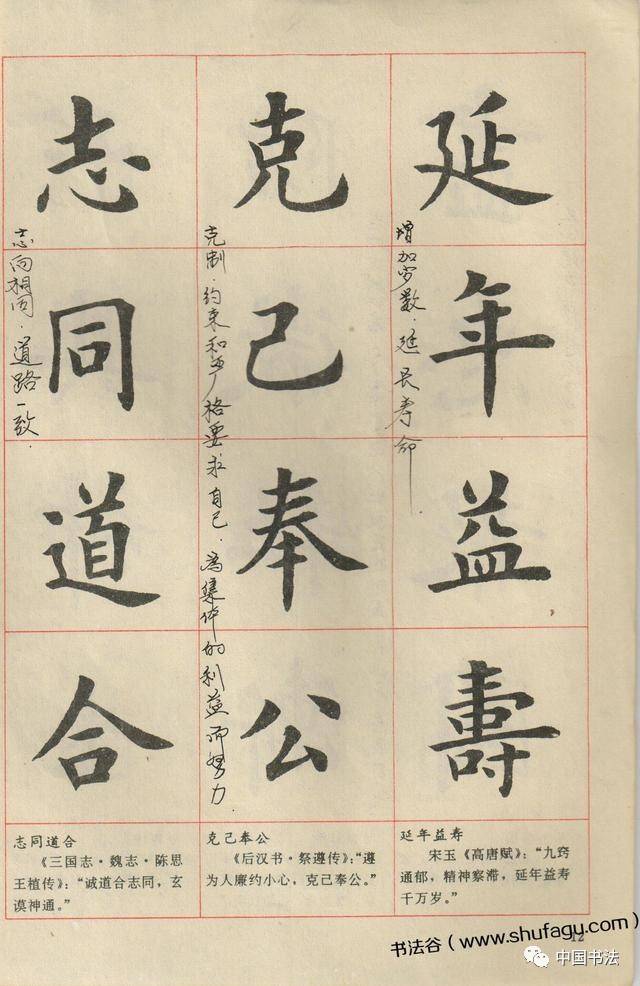 延年益壽
增加岁数．延长寿命
克己奉公
克制．约束和严格要求自己．为集体的利益而努力．
志同道合
志向相同．道路一致．
延年益寿
宋玉《高唐赋》：“九窍
通郁，精神察滞，延年益寿
千万岁。”
克己奉公
《后汉书·祭遵传》：“遵
为人廉约小心，克己奉公。”
志同道合
《三国志·魏志·陈思
王植传》：“诚道合志同，玄
谟神通。”
12
书法谷（www.shufagu.com
中国书法